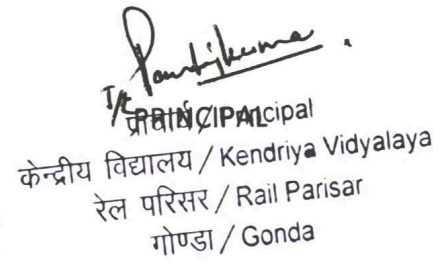 I/C PRINCIPAL
प्राचार्य / Principal
केन्द्रीय विद्यालय / Kendriya Vidyalaya
रेल परिसर / Rail Parisar
गोण्डा / Gonda